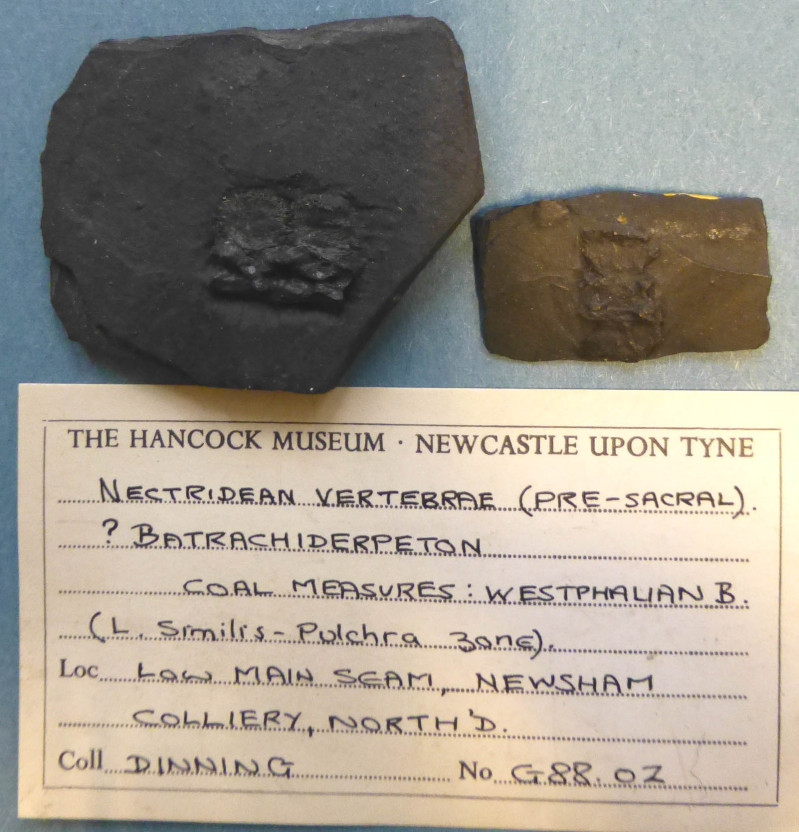 THE HANCOCK MUSEUM · NEWCASTLE UPON TYNE
NECTRIDEAN VERTEBRAE (PRE-SACRAL).
? BATRACHIDERPETON
COAL MEASURES: WESTPHALIAN B.
(L. Similis-Pulchra zone).
Loc LOW MAIN SEAM, NEWSHAM
COLLIERY, NORTH'D.
Coll DINNING No G88.02